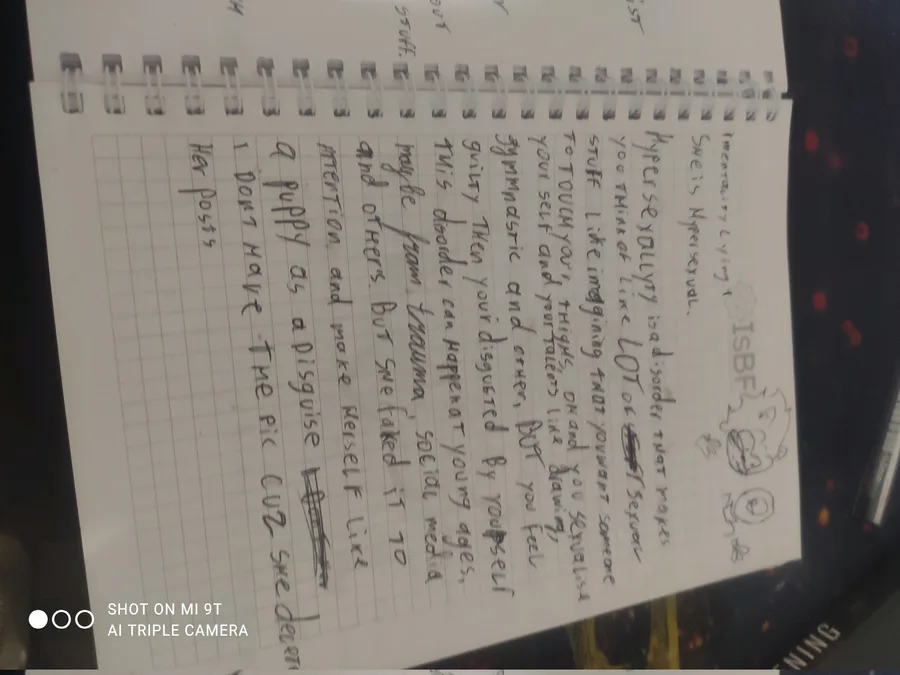 IST
r
out
stuff.
H
Imentality Lying,
ISBF
She is Hypersexual.
Hypersexuallyty is a disorder that makes
you think of like LOT OF sexual
stuff like imagining that you want someone
to touch your, thighs, oh and you sexualise
your self and your talents like drawing,
gymnastic and other, But you feel
guilty then your disgusted By yourself
this disorder can happen at young ages,
maybe from trauma, social media
and others. But she faked it to
Attention and make Herself like
a puppy as a Disguise
I Dont Have The pic cuz she deleted
Her posts
SHOT ON MI 9T
AI TRIPLE CAMERA
NING